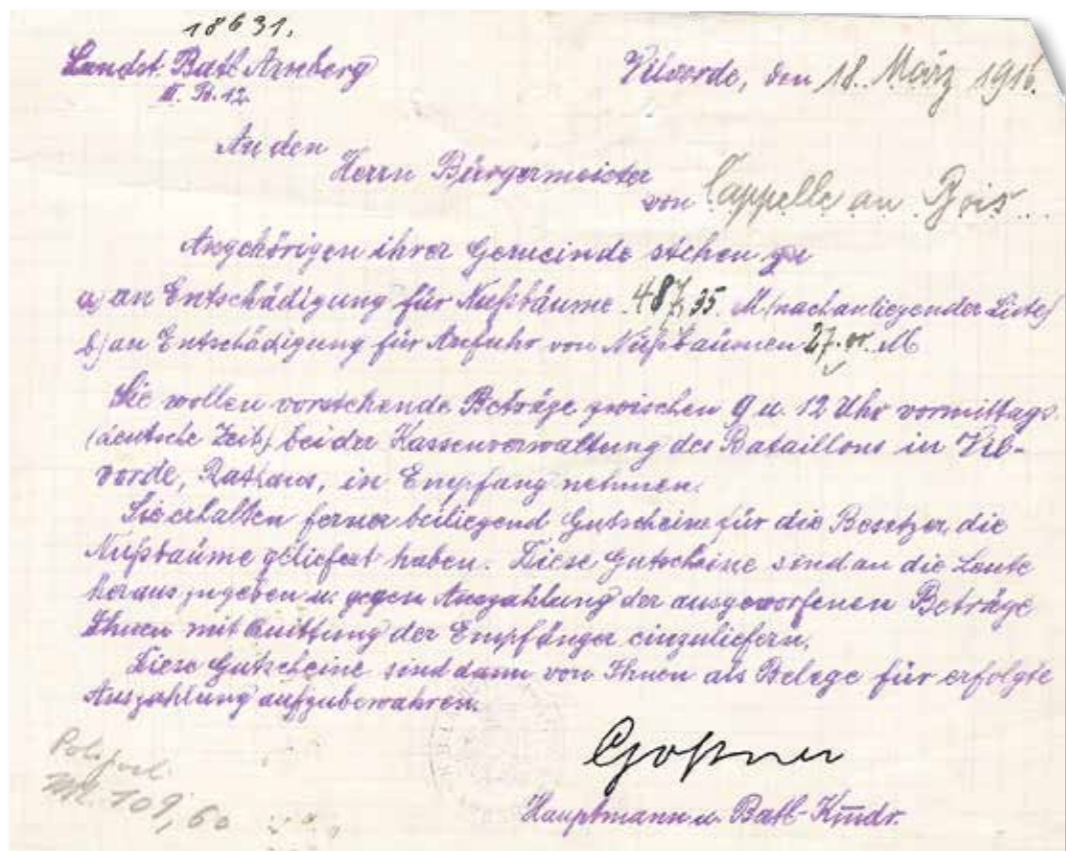 18631.
Landst. Batl. Arnsberg
Vilvorde, den 18. März 1916.
III. B. 12.
An den
Herrn Bürgermeister
von Cappelle au Bois
Angehörigen ihrer Gemeinde stehen zu
a) an Entschädigung für Nußbäume 487,35 M. (nach anliegender Liste)
b) an Entschädigung für Anfuhr von Nußbäumen 27. M
Sie wollen vorstehende Beträge zwischen 9 u. 12 Uhr vormittags.
(deutsche Zeit) bei der Kassenverwaltung des Bataillons in Vil-
vorde, Rathaus, in Empfang nehmen.
Sie erhalten ferner beiliegend Gutscheine für die Besitzer, die
Nußbäume geliefert haben. Diese Gutscheine sind an die Leute
herauszugeben u. gegen Auszahlung der ausgeworfenen Beträge
Ihnen mit Quittung der Empfänger einzuliefern.
Diese Gutscheine sind dann von Ihnen als Belege für erfolgte
Auszahlung aufzubewahren.
Goßner
Mk. 109,60
Hauptmann u. Batl-Kmdr.